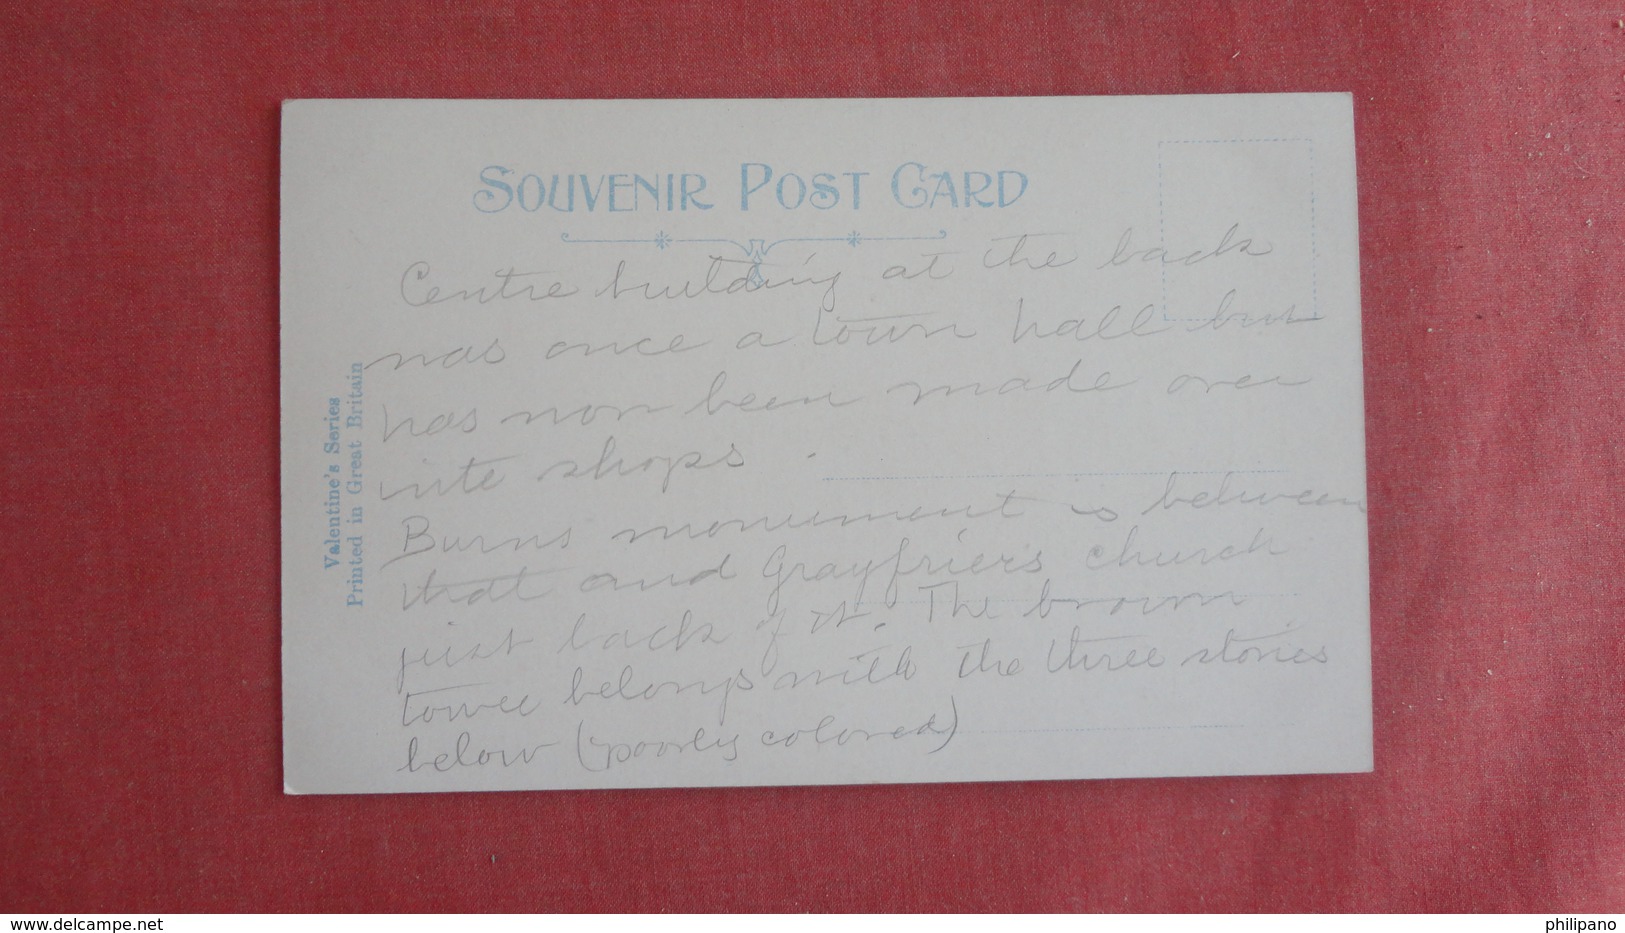 SOUVENIR POST CARD
Centre building at the back
was once a town hall but
has now been made over
into shops.
Burns monument is between
that and Grayfrier's church
just back of it. The brown
tower belongs with the three stories
below (poorly colored)
Valentine's Series
Printed in Great Britain
www.delcampe.net
philipano